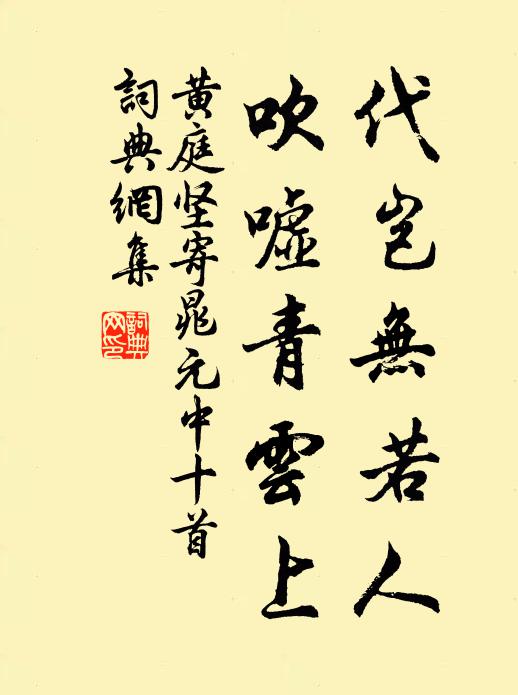 代岂無若人
吹嘘青雲上
黄庭坚寄晁元中十首
詞典網集
詞典网印